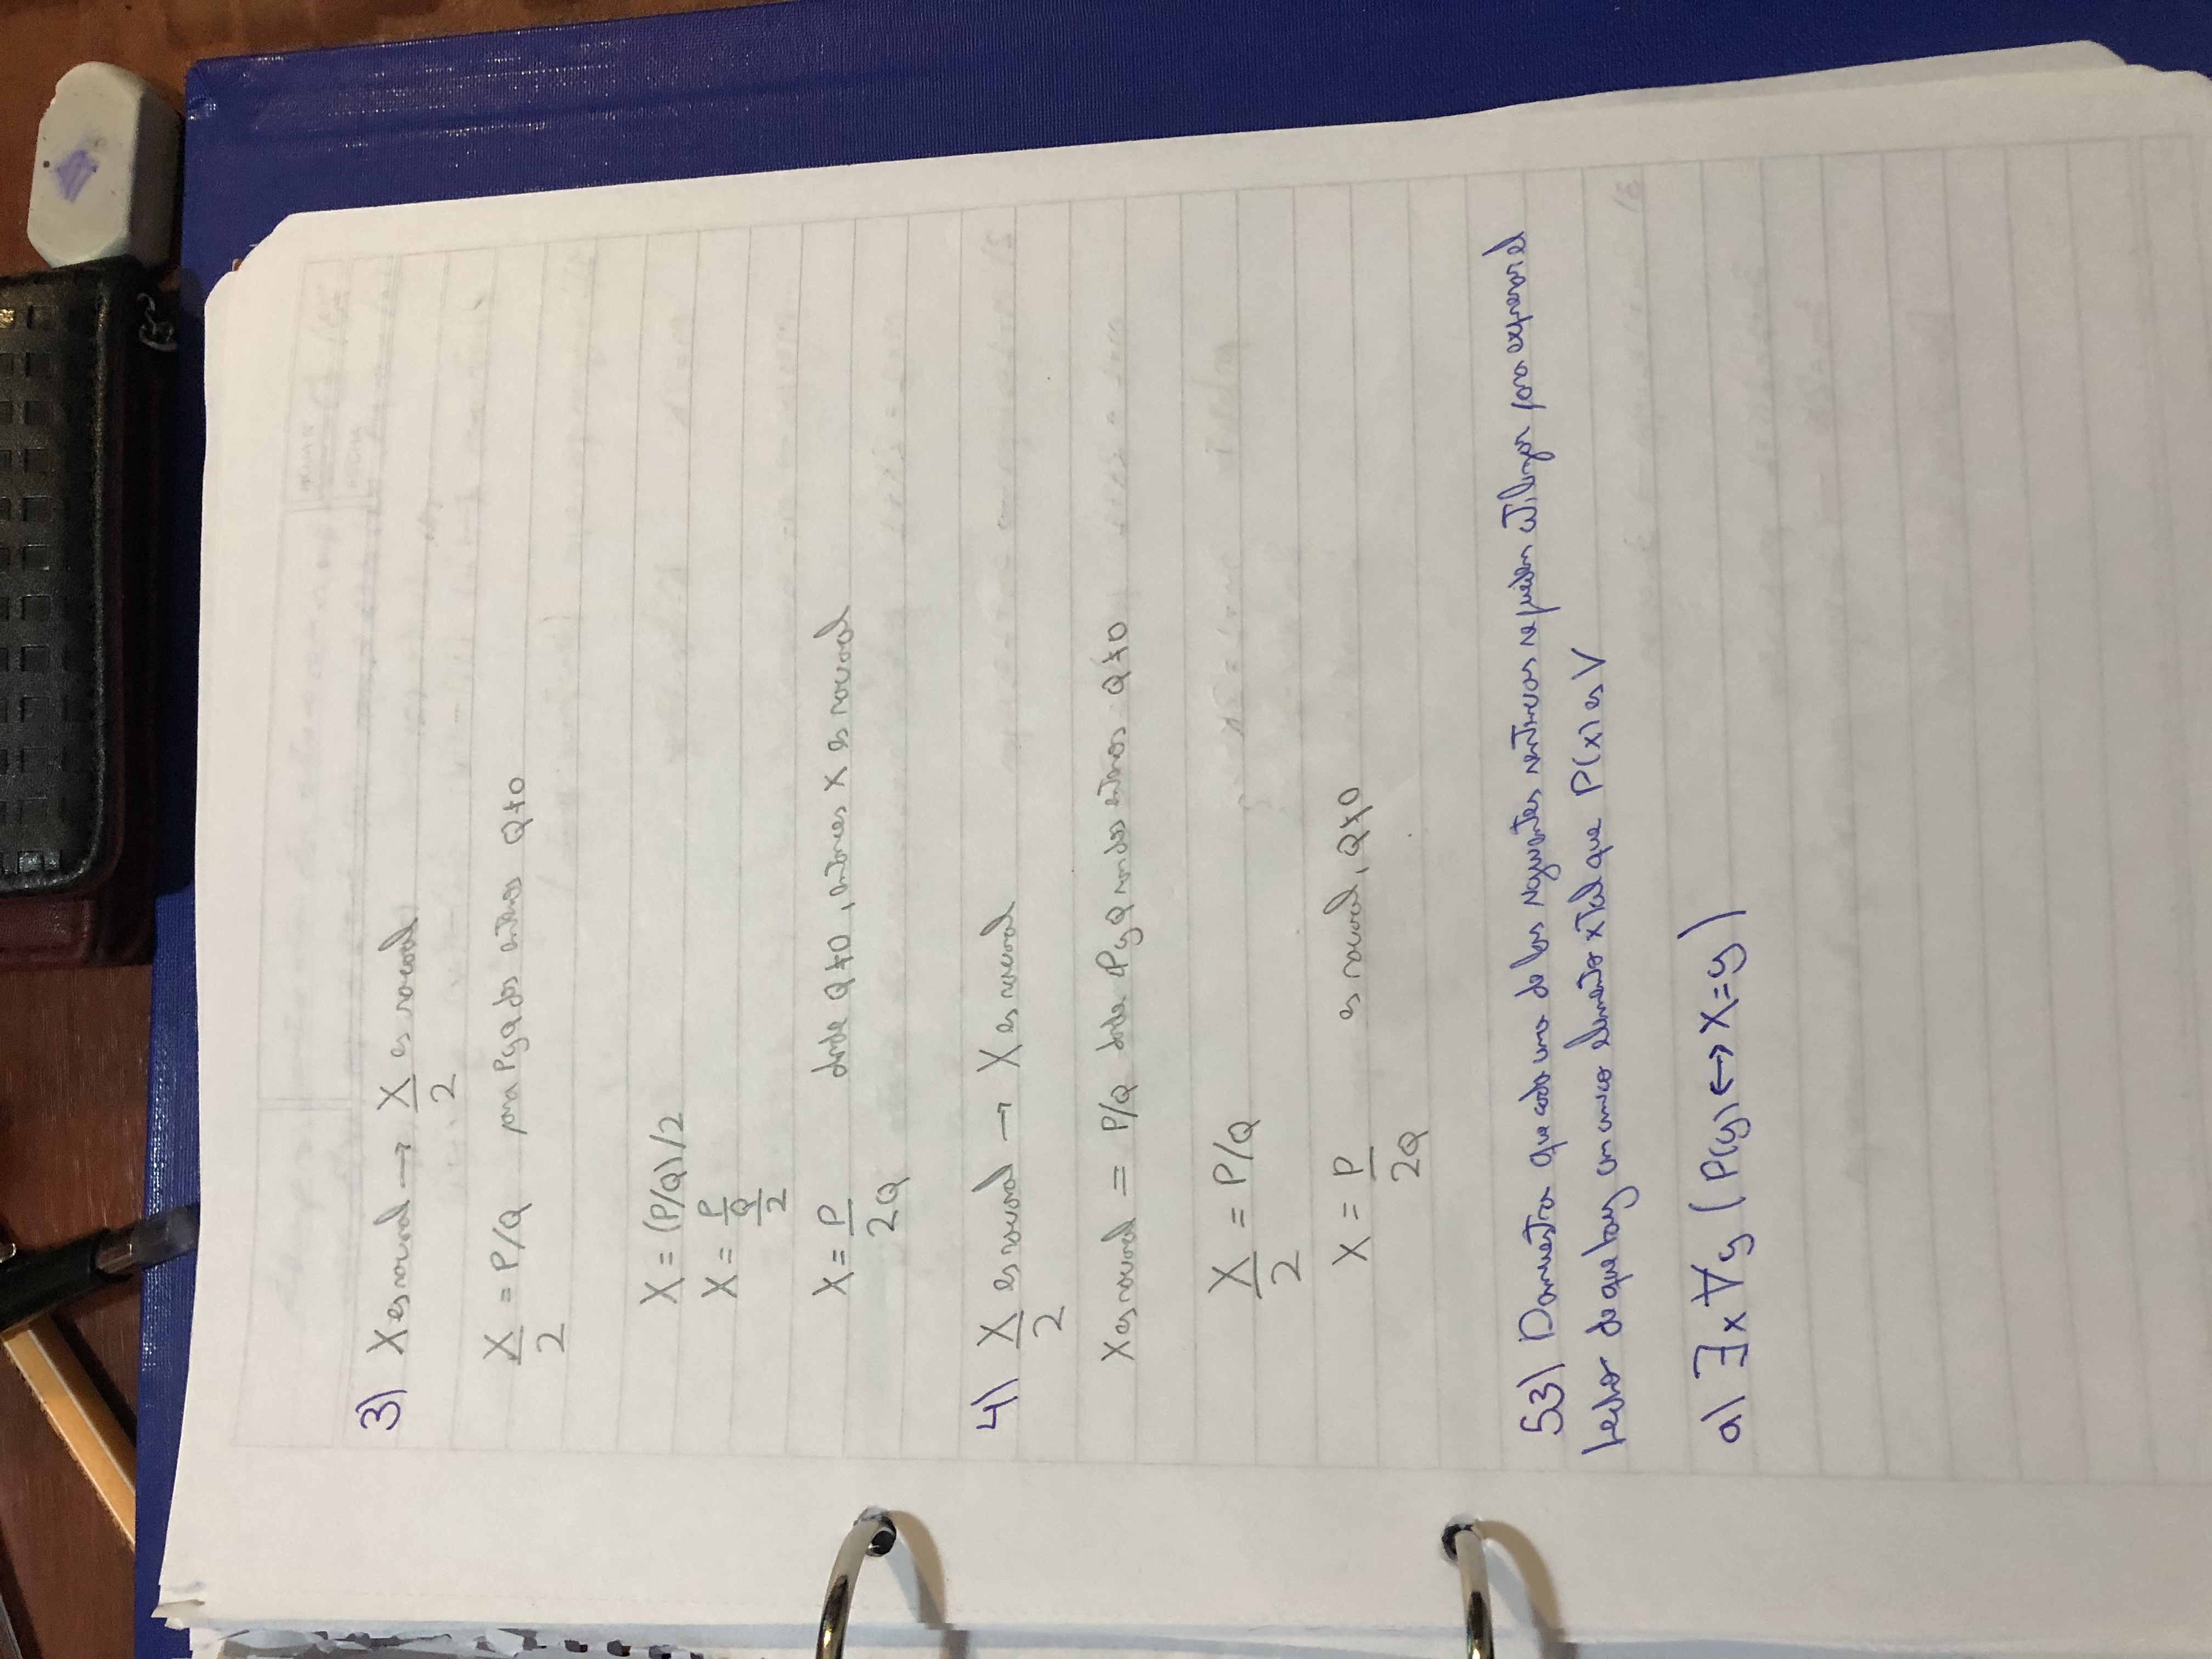 3) X es racional → X/2 es racional
X/2 = P/Q para P y Q dos enteros Q≠0
X = (P/Q)/2
X = P/Q/2
X = P/2Q donde Q≠0, entonces X es racional
4) X/2 es racional → X es racional
X es racional = P/Q donde P y Q son dos enteros Q≠0
X/2 = P/Q
X = P/2Q es racional, Q≠0
53) Demuestra que cada una de las siguientes sentencias se pueden utilizar para expresar el
hecho de que hay un unico elemento x tal que P(x) es V
a) ∃x∀y (P(y)↔X=y)